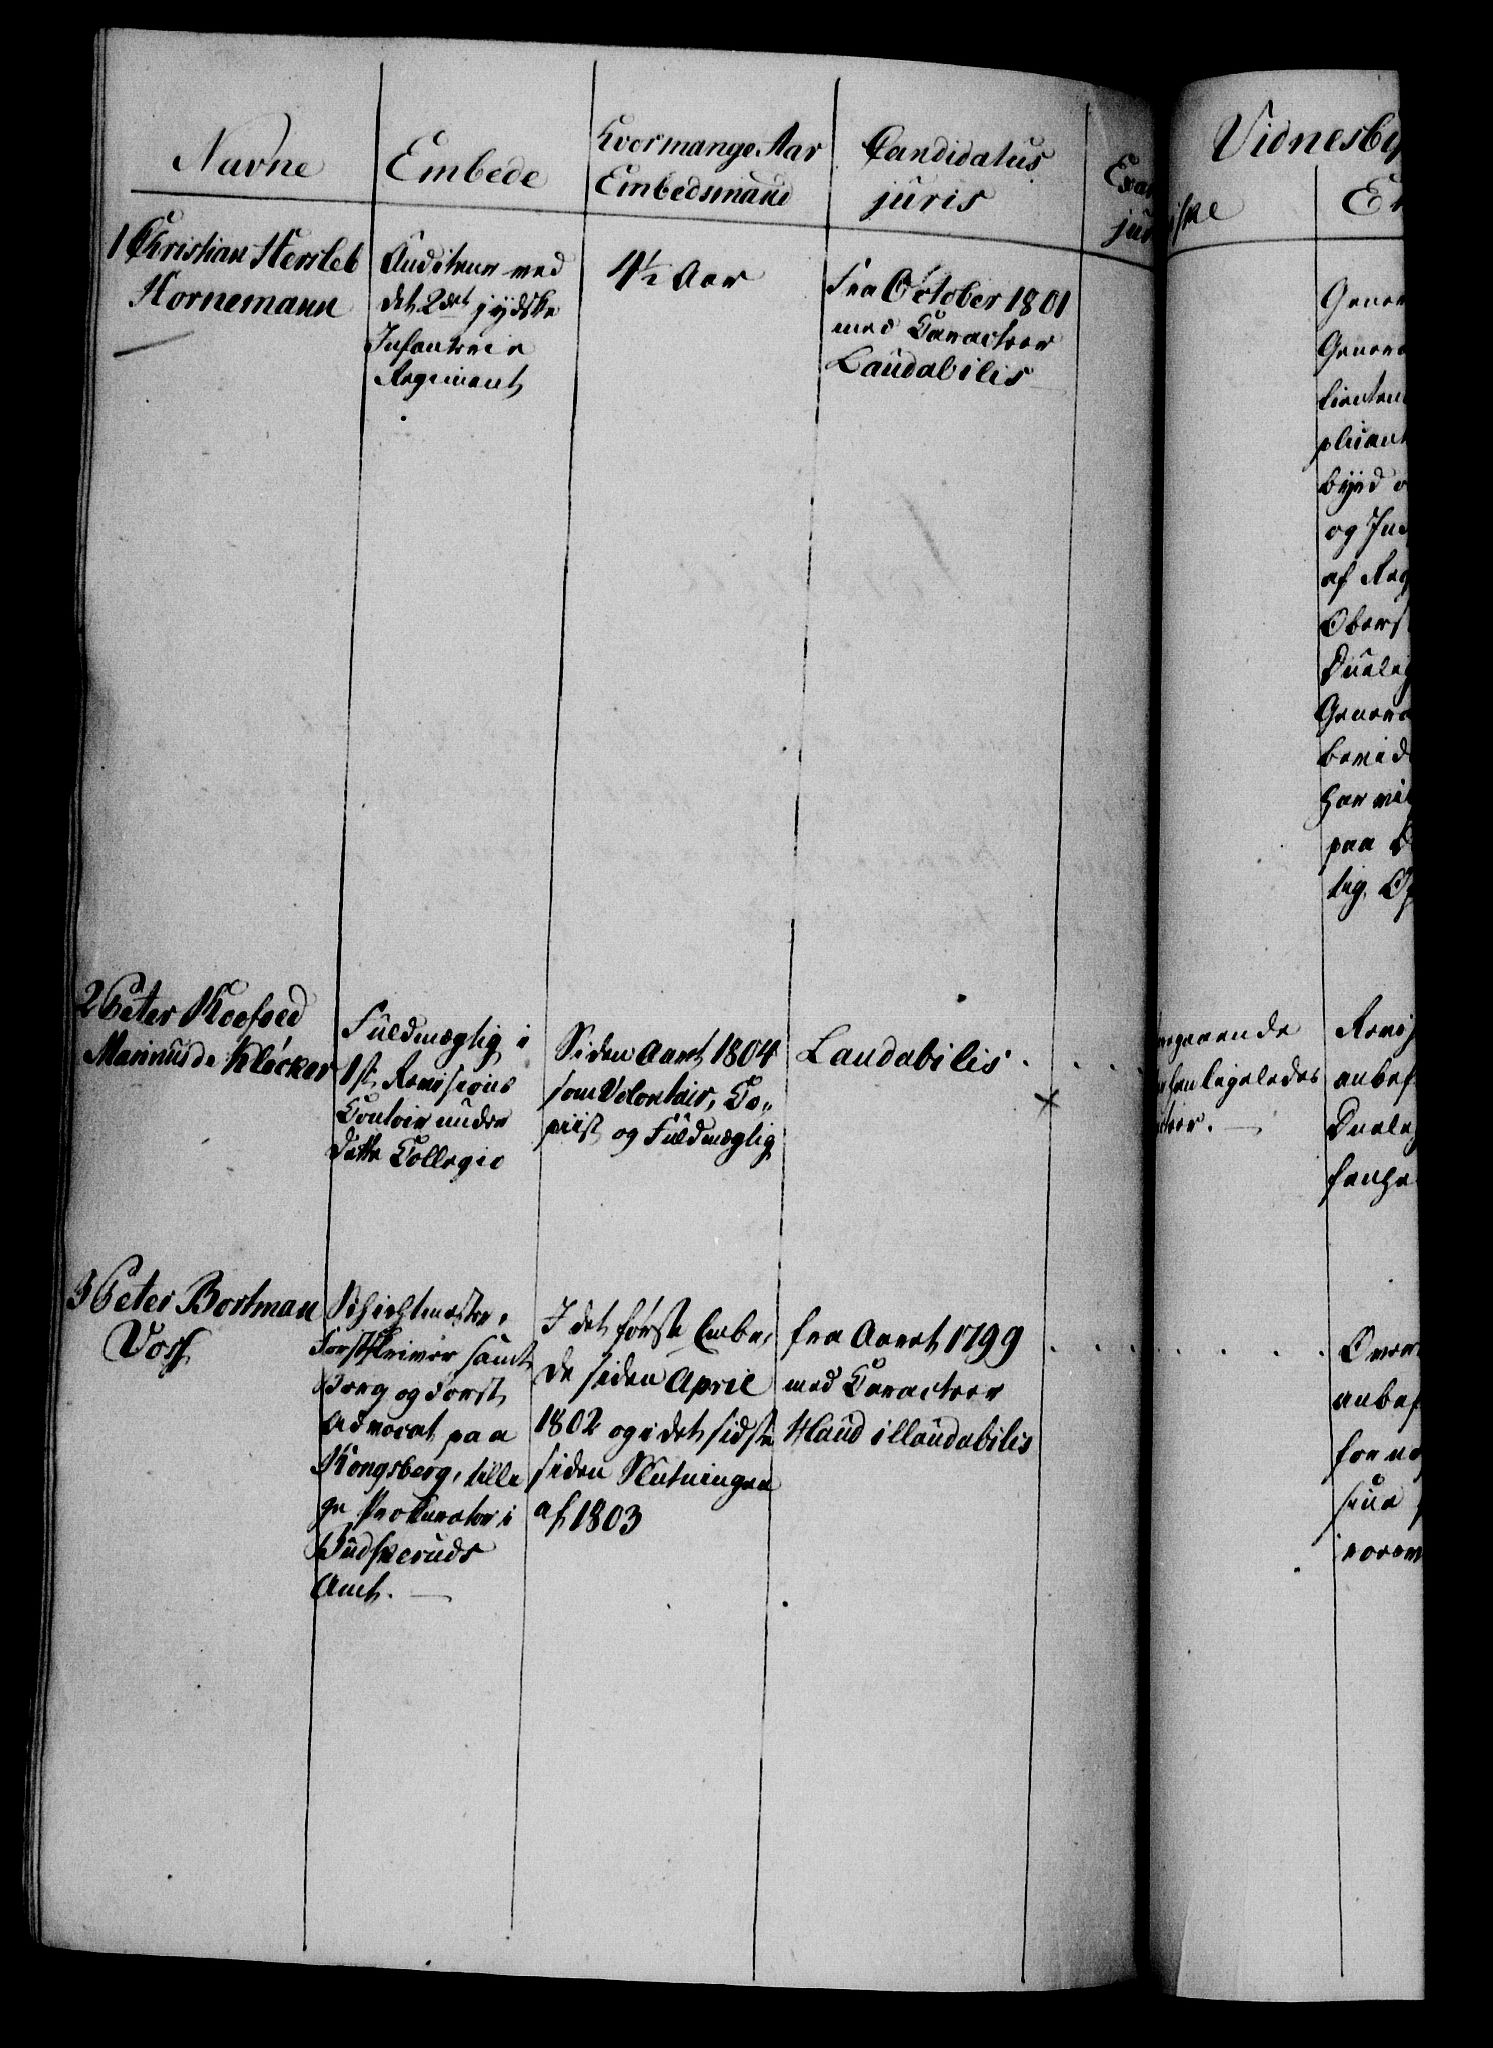 Navne
Embede
Hvormange Aar
Embedsmand
Candidatus
juris
Exa
jur
1 Christian Hersleb
Hornemann
Auditeur ved
det 2det jydske
Infanterie
Regiment
4½ Aar
fra October 1801
med Caracteer
Laudabilis
2 Peter Koefoed
Marinus de Klöcker
Fuldmægtig i
1st Revisions
Contoir under
dette Collegio
Siden Aaret 1804
som Volontair, Co-
piist og Fuldmægtig
Laudabilis . . .
3 Peter Bortman
Voss
Schichtmester,
Forstskriver samt
Berg og Forst
Advocat paa
Kongsberg, tilli-
ge Prokurator i
Budskeruds
Amt.
I det første Embe-
de siden April
1802 og i det sidste
siden Slutningen
af 1803
fra Aaret 1799
med Caracteer
Haud illaudabilis
Vidnesby
iske
Em
Gener
Genera
Lieuten
plicant
byrd o
og Ind
af Reg
Oberst
Duelig
Genera
bevid
har vi
paa
lig Op
ligeledes
Revis
anbef
Duelig
anbef
for